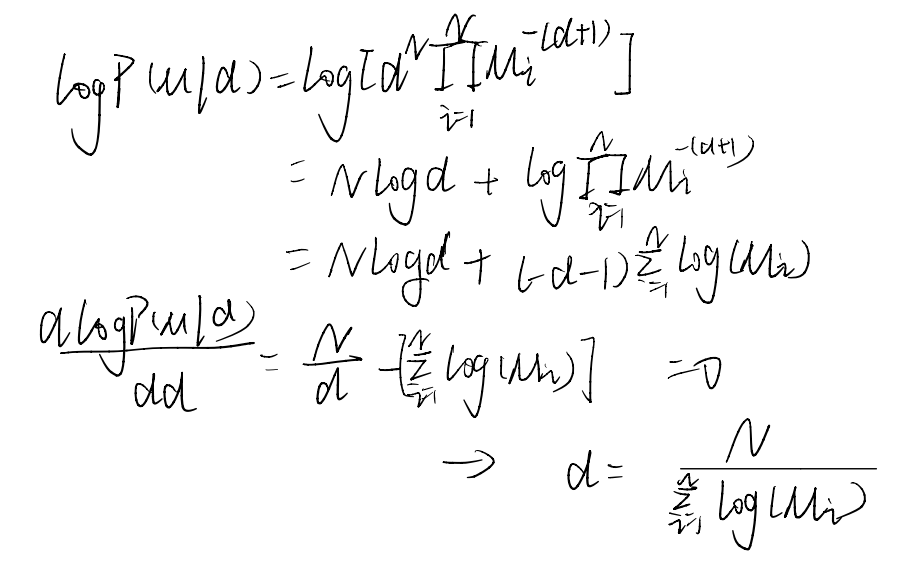 log P(μ|α) = log[α^N ∏_{i=1}^N μ_i^{-(α+1)}]
= N log α + log ∏_{i=1}^N μ_i^{-(α+1)}
= N log α + (-α-1) ∑_{i=1}^N log(μ_i)
d log P(μ|α) / dα = N/α - [∑_{i=1}^N log(μ_i)] = 0
→ α = N / ∑_{i=1}^N log(μ_i)